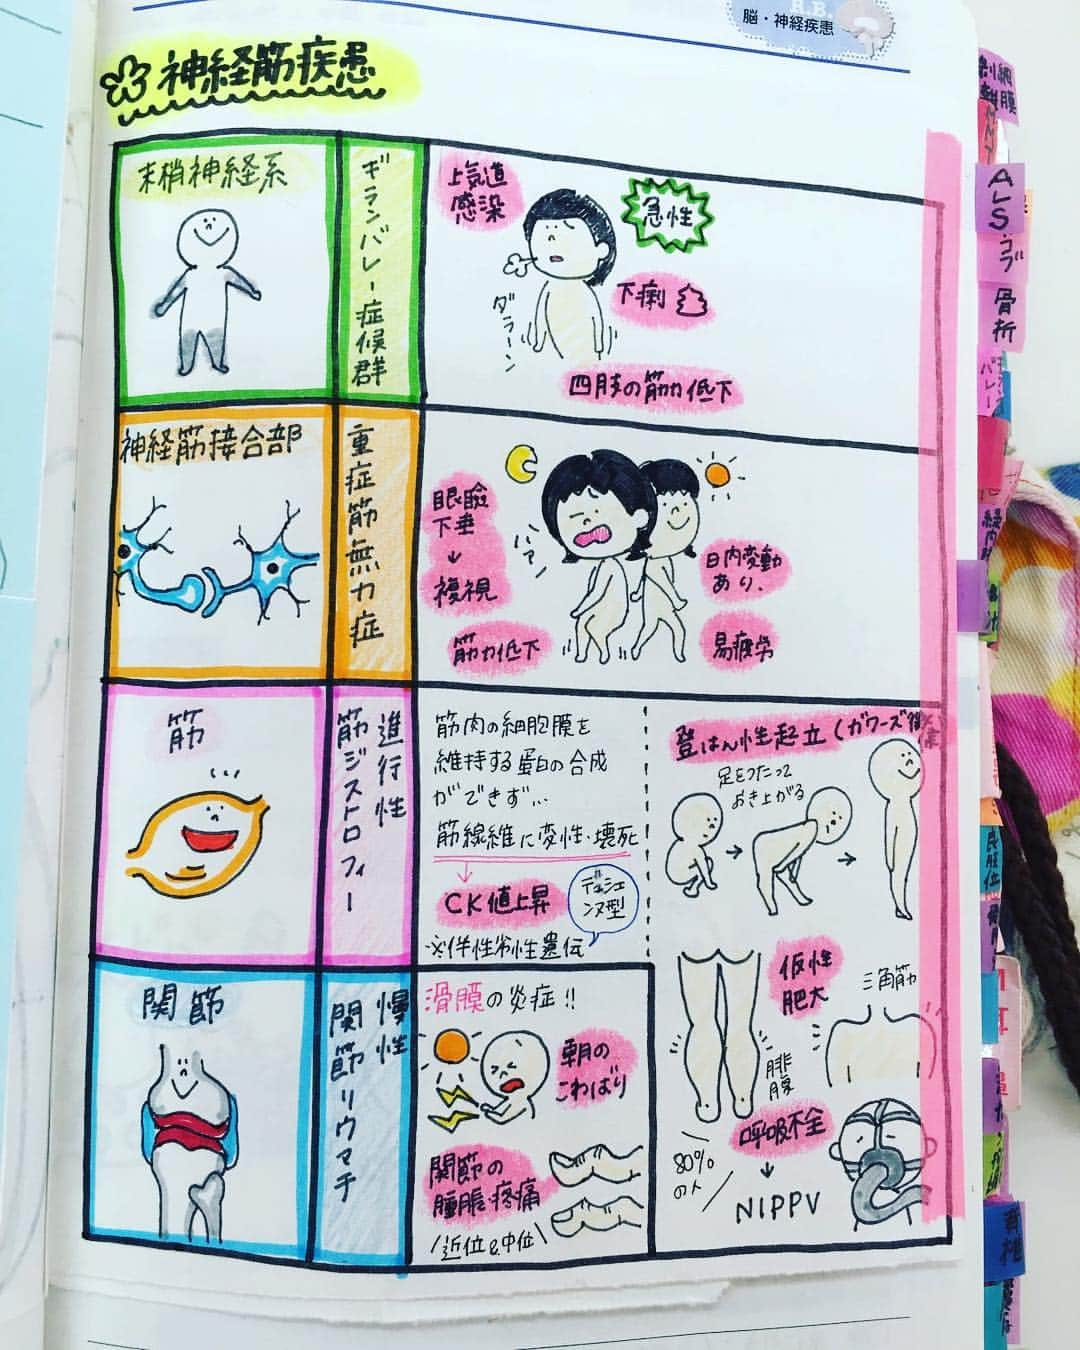 脳・神経疾患
神経筋疾患
末梢神経系
ギランバレー症候群
上気道
感染
急性
ダラーン
下痢
四肢の筋力低下
神経筋接合部
重症筋無力症
眼瞼
下垂
↓
複視
ハァ
日内変動
あり、
筋力低下
易疲労
筋
進行性
筋ジストロフィー
筋肉の細胞膜を
維持する蛋白の合成
ができず…
筋線維に変性・壊死
CK値上昇
デュシェ
ンヌ型
※伴性劣性遺伝
登はん性起立(ガワーズ徴
足をつたって
おき上がる
仮性
肥大
三角筋
腓腹
呼吸不全
80%
の人
↓
NIPPV
関節
慢性
関節リウマチ
滑膜の炎症!!
朝の
こわばり
関節の
腫脹・疼痛
近位&中位
細膜
ALS
骨折
バレー
脊椎